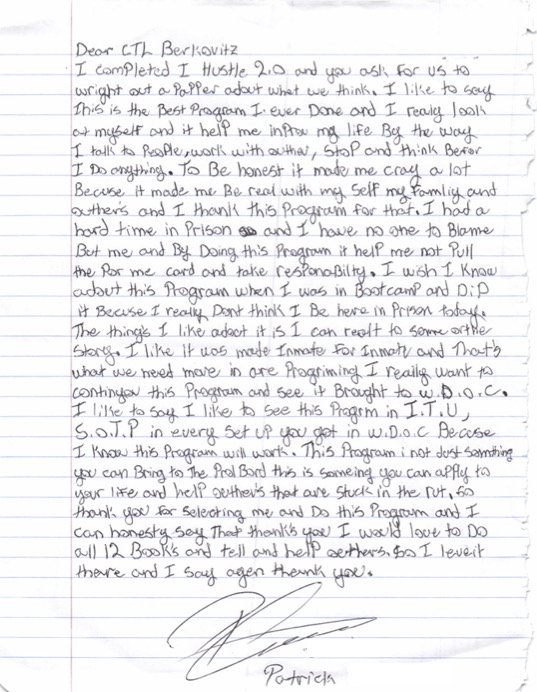 Dear CTL Berkovitz
I completed I Hustle 2.0 and you ask for us to
wright out a Papper adout what we think. I like to say
this is the Best Program I ever Done and I realy look
at myself and it help me inprov my life By the way
I talk to People, work with outher, Stop and think Befor
I Do anything. To Be honest it made me cray a lot
Becouse it made me Be real with my self my Famliy and
outhers and I thank this Program for that. I had a
hard time in Prison and I have no one to Blame
But me and By Doing this Program it help me not Pull
the Por me card and take responability. I wish I Know
adout this Program when I was in Bootcamp and DiD
it Becuse I really Dont think I Be here in Prison today.
The things I like adoct it is I can realt to some orthe
Storg. I like it was made Inmate For Inmate and That's
what we need more in are Progriming I really want to
continyou this Program and see it Brought to W.D.O.C.
I like to say I like to see this Progrm in I.T.U,
S.O.T.P in every set up you got in W.D.O.C Becuse
I Know this Program will work. This Program i not Just somthing
you can Bring to The Prol Bord this is someing you can apply to
your life and help outhers that are stuck in the rut, so
thank you for selecting me and Do this Program and I
can honesty say That thanks you I would love to Do
all 12 Book's and tell and help outhers. So I leve it
theare and I say agen theank you.
Patrick